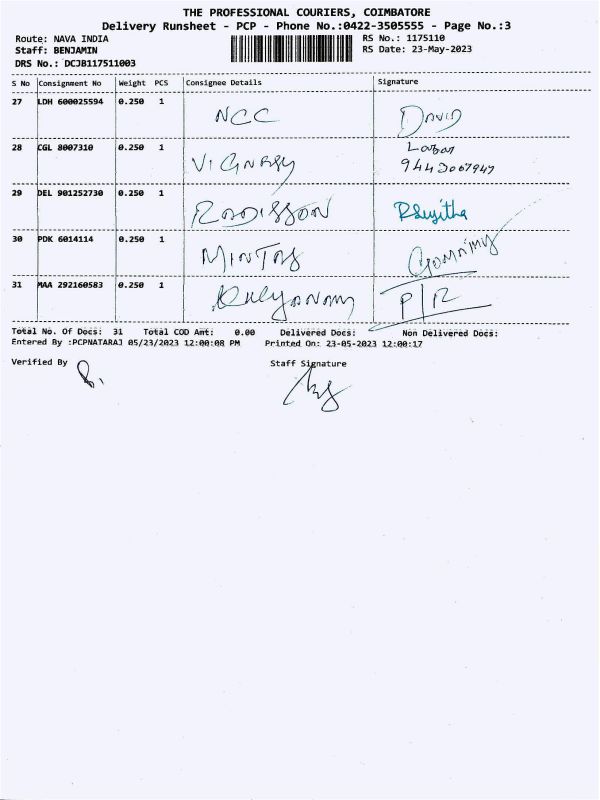 THE PROFESSIONAL COURIERS, COIMBATORE
Delivery Runsheet - PCP - Phone No.:0422-3505555 - Page No.:3
Route: NAVA INDIA RS No.: 1175110
Staff: BENJAMIN RS Date: 23-May-2023
DRS No.: DCJB117511003
S No Consignment No Weight PCS Consignee Details Signature
27 LDH 600025594 0.250 1 NCC David
28 CGL 8007310 0.250 1
29 DEL 901252730 0.250 1 RADISSON
30 PDK 6014114 0.250 1
31 MAA 292160583 0.250 1 P/R
Total No. Of Docs: 31 Total COD Amt: 0.00 Delivered Docs: Non Delivered Docs:
Entered By :PCPNATARAJ 05/23/2023 12:00:08 PM Printed On: 23-05-2023 12:00:17
Verified By Staff Signature